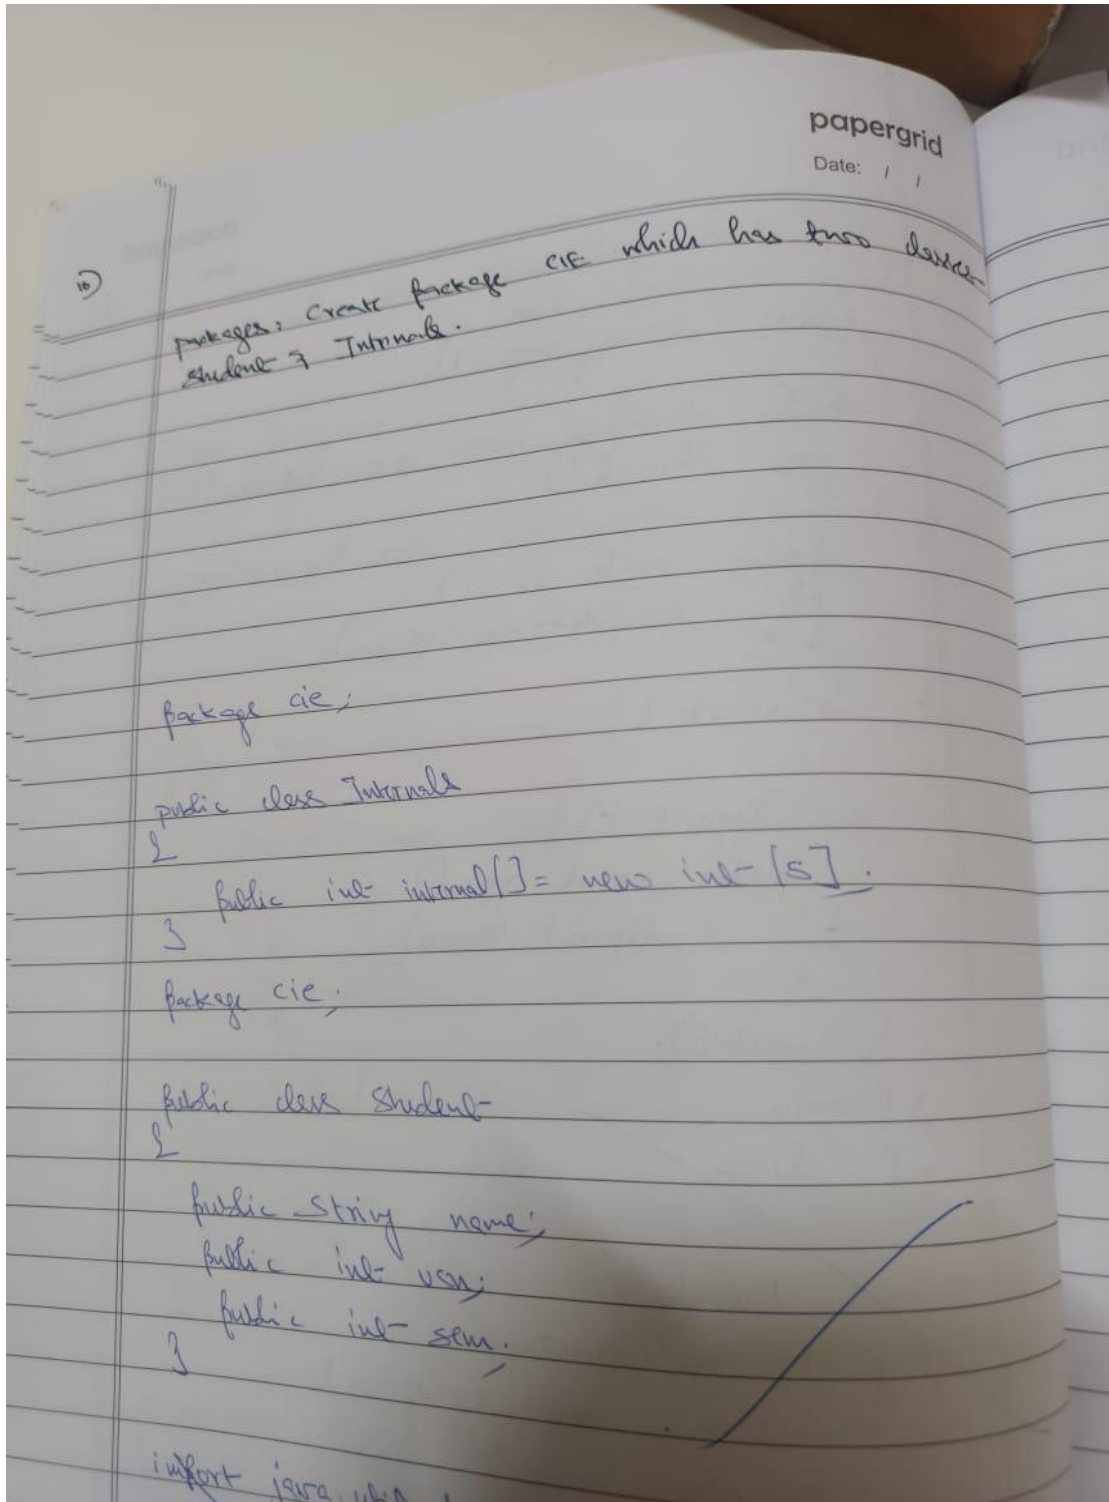 papergrid
Date: / /
10)
packages: Create package CIE which has two classes
Student & Internals.
package cie;
public class Internals
{
public int internal[] = new int [5];
}
package cie;
public class Student
{
public String name;
public int usn;
public int sem;
}
import java.util